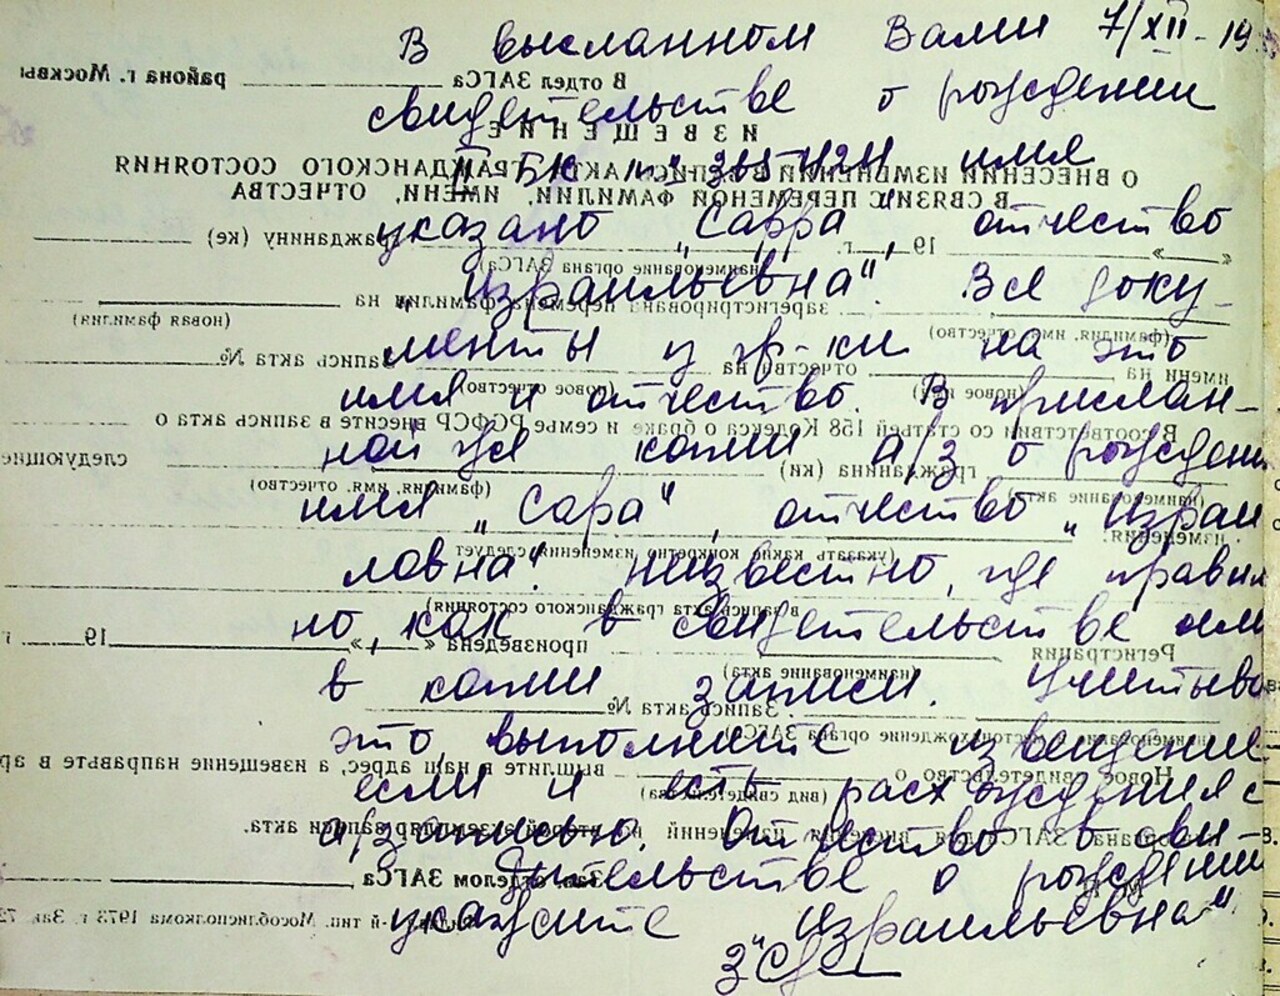 В высланном Вами 7/XII-19
свидетельстве о рождении
II БК №3 имя
указано „Сарра", отчество
„Израильевна". Все доку-
менты у гр-ки на это
имя и отчество. В прислан-
ной же копии а/з о рождени
имя „Сара", отчество „Израи
ловна". Неизвестно, где правил
но, как в свидетельстве или
в копии записи. Учитыва
это, выполните извещение
если и есть расхождения с
а/записью. Отчество в сви-
детельстве о рождении
укажите „Израильевна"
В отдел ЗАГСа района г. Москвы
ИЗВЕЩЕНИЕ
О ВНЕСЕНИИ ИЗМЕНЕНИЙ В ЗАПИСИ АКТ ГРАЖДАНСКОГО СОСТОЯНИЯ
В СВЯЗИ С ПЕРЕМЕНОЙ ФАМИЛИИ, ИМЕНИ, ОТЧЕСТВА
« » 19 г. гражданину (ке)
(наименование органа ЗАГСа)
зарегистрирована перемена фамилии на
(фамилия, имя, отчество) (новая фамилия)
имени на отчества на Запись акта №
(новое имя) (новое отчество)
В соответствии со статьей 158 Кодекса о браке и семье РСФСР внесите в запись акта о
гражданина (ки) следующие
(наименование акта) (фамилия, имя, отчество)
изменения:
(указать какие конкретно изменения следует
в запись акта гражданского состояния)
Регистрация произведена « » 19 г
(наименование акта)
Запись акта №
(наименование и местонахождение органа ЗАГСа)
Новое свидетельство о вышлите в наш адрес, а извещение направьте в ар
(вид свидетельства)
органа ЗАГСа для внесения изменений во второй экземпляр записи акта.
Зав. отделом ЗАГСа
-й тип. Мособлисполкома 1973 г. Зак. 72